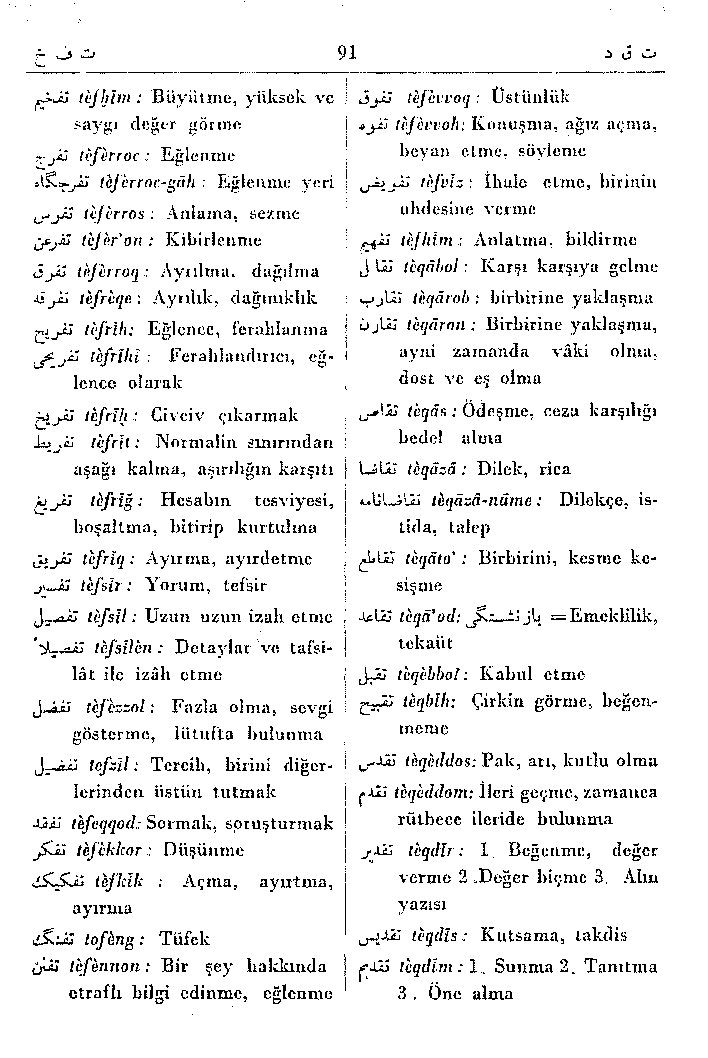 ت ف خ 91 ت ق د
تفخيم tèfḫîm : Büyütme, yüksek ve
saygı değer görme
تفرج tèfèrroc : Eğlenme
تفرجگاه tèfèrroc-gâh : Eğlenme yeri
تفرس tèfèrros : Anlama, sezme
تفرعن tèfèr'on : Kibirlenme
تفرق tèfèrroq : Ayrılma, dağılma
تفرقه tèfrèqe : Ayrılık, dağınıklık
تفريح tèfrîh: Eğlence, ferahlanma
تفريحى tèfrîhî : Ferahlandırıcı, eğ-
lence olarak
تفريخ tèfrîḫ : Civciv çıkarmak
تفريط tèfrît : Normalin sınırından
aşağı kalma, aşırılığın karşıtı
تفريغ tèfrîğ : Hesabın tesviyesi,
boşaltma, bitirip kurtulma
تفريق tèfrîq : Ayırma, ayırdetme
تفسير tèfsîr : Yorum, tefsir
تفصيل tèfsîl : Uzun uzun izah etme
تفصيلاً tèfsîlèn : Detaylar ve tafsi-
lât ile izâh etme
تفضل tèfèzzol : Fazla olma, sevgi
gösterme, lütufta bulunma
تفضيل tefzîl : Tercih, birini diğer-
lerinden üstün tutmak
تفقد tèfeqqod: Sormak, soruşturmak
تفكر tèfèkkor : Düşünme
تفكيك tèfkîk : Açma, ayırtma,
ayırma
تفنگ tofèng : Tüfek
تفنن tèfènnon : Bir şey hakkında
etraflı bilgi edinme, eğlenme
تفوق tèfèvvoq : Üstünlük
تفوه tèfèvvoh: Konuşma, ağız açma,
beyan etme, söyleme
تفويض tèfvîz : İhale etme, birinin
uhdesine verme
تفهيم tèfhîm : Anlatma, bildirme
تقابل tèqâbol : Karşı karşıya gelme
تقارب tèqârob : birbirine yaklaşma
تقارن tèqâron : Birbirine yaklaşma,
ayni zamanda vâki olma,
dost ve eş olma
تقاص tèqâs : Ödeşme, ceza karşılığı
bedel alma
تقاضا tèqâzâ : Dilek, rica
تقاضانامه tèqâzâ-nâme : Dilekçe, is-
tida, talep
تقاطع tèqâto' : Birbirini, kesme ke-
sişme
تقاعد tèqâ'od: بازنشستگى = Emeklilik,
tekaüt
تقبل tèqèbbol : Kabul etme
تقبيح tèqbîh: Çirkin görme, beğen-
meme
تقدس tèqèddos: Pak, arı, kutlu olma
تقدم tèqèddom: İleri geçme, zamanca
rütbece ileride bulunma
تقدير tèqdîr : 1. Beğenme, değer
verme 2. Değer biçme 3. Alın
yazısı
تقديس tèqdîs : Kutsama, takdis
تقديم tèqdîm : 1. Sunma 2. Tanıtma
3 . Öne alma